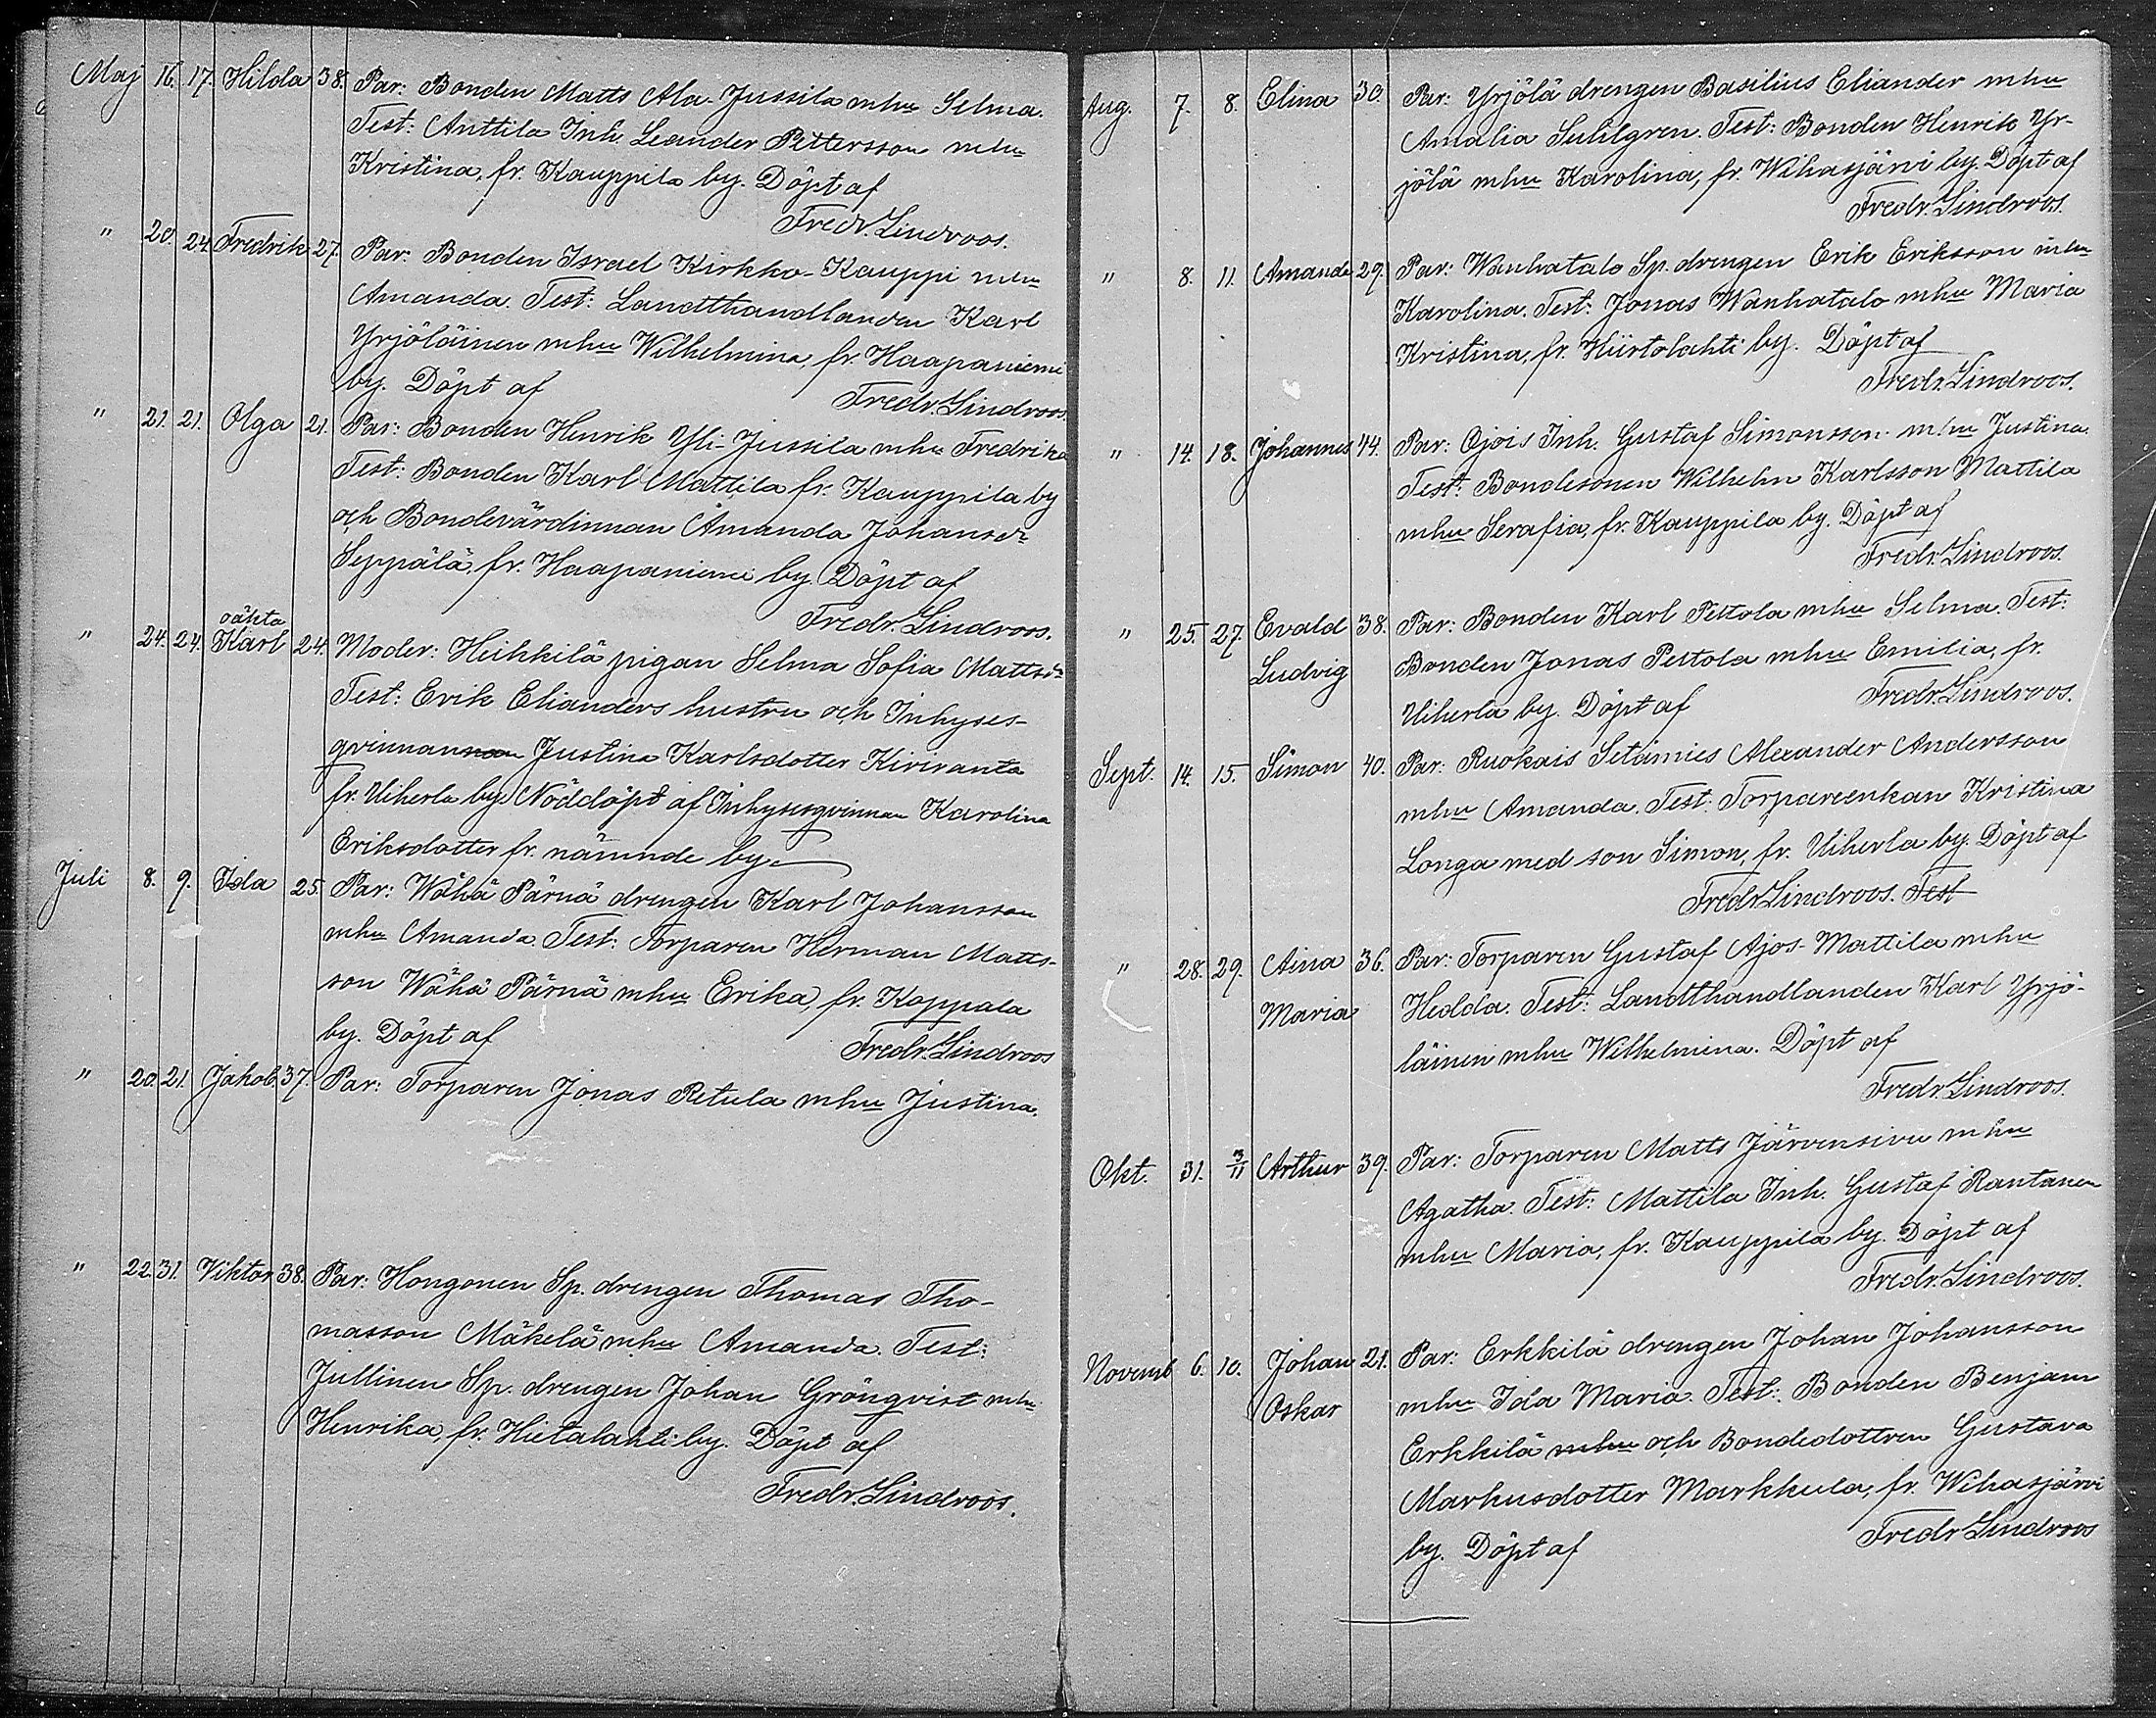 Maj 16. 17. Hilda 38. Par: Bonden Matts Ala-Jussila mhu Selma.
Test: Anttila Inh. Leander Pettersson mhu
Kristina, fr. Kauppila by. Döpt af
Fredr. Lindroos.
" 20. 24. Fredrik 27. Par: Bonden Israel Kirkko-Kauppi mhu
Amanda. Test: Landthandlanden Karl
Yrjöläinen mhu Wilhelmina, fr. Haapaniemi
by. Döpt af Fredr. Lindroos.
" 21. 21. Olga 21. Par: Bonden Henrik Yli-Jussila mhu Fredrika
Test: Bonden Karl Mattila fr. Kauppila by
och Bondevärdinnan Amanda Johansdr
Seppälä, fr. Haapaniemi by. Döpt af
Fredr. Lindroos.
oäkta
" 24. 24. Karl 24. Moder: Heikkilä pigan Selma Sofia Mattsdr
Test: Erik Elianders hustru och Inhyses-
qvinnan Justina Karlsdotter Kiviranta
fr. Uiherla by. Nöddöpt af Inhysesqvinnan Karolina
Eriksdotter fr. nämnde by.
Juli 8. 9. Ida 25. Par: Wähä Pärnä drengen Karl Johansson
mhu Amanda. Test: Torparen Herman Matts-
son Wähä Pärnä mhu Erika, fr. Koppala
by. Döpt af Fredr. Lindroos
" 20. 21. Jakob 37. Par: Torparen Jonas Petula mhu Justina.
" 22. 31. Viktor 38. Par: Hongonen Sp. drengen Thomas Tho-
masson Mäkelä mhu Amanda. Test:
Jullinen Sp. drengen Johan Grönqvist mhu
Henrika, fr. Hietalahti by. Döpt af
Fredr. Lindroos.
Aug. 7. 8. Elina 30. Par: Yrjölä drengen Basilius Eliander mhu
Amalia Sulilgren. Test: Bonden Henrik Yr-
jölä mhu Karolina, fr. Wihasjärvi by. Döpt af
Fredr. Lindroos.
" 8. 11. Amanda 29. Par: Wanhatalo Sp. drengen Erik Eriksson mhu
Karolina. Test: Jonas Wanhatalo mhu Maria
Kristina, fr. Hiirtolahti by. Döpt af
Fredr. Lindroos.
" 14. 18. Johannes 44. Par: Ojois Inh. Gustaf Simonsson mhu Justina.
Test: Bondesonen Wilhelm Karlsson Mattila
mhu Serafia, fr. Kauppila by. Döpt af
Fredr. Lindroos.
" 25. 27. Evald 38. Par: Bonden Karl Pettola mhu Selma. Test:
Ludvig Bonden Jonas Pettola mhu Emilia, fr.
Uiherla by. Döpt af Fredr. Lindroos.
Sept. 14. 15. Simon 40. Par: Ruokais Setämies Alexander Andersson
mhu Amanda. Test: Torpareenkan Kristina
Longa med son Simon, fr. Uiherla by. Döpt af
Fredr. Lindroos. Test
" 28. 29. Aina 36. Par: Torparen Gustaf Ajos-Mattila mhu
Maria Hedda. Test: Landthandlanden Karl Yrjö-
läinen mhu Wilhelmina. Döpt af
Fredr. Lindroos.
Okt. 31. 3/11 Arthur 39. Par: Torparen Matts Järvensivu mhu
Agatha. Test: Mattila Inh. Gustaf Rantanen
mhu Maria, fr. Kauppila by. Döpt af
Fredr. Lindroos.
Novemb 6. 10. Johan 21. Par: Erkkilä drengen Johan Johansson
Oskar mhu Ida Maria. Test: Bonden Benjam
Erkkilä mhu och Bondedottren Gustava
Markusdotter Markkula, fr. Wihasjärvi
by. Döpt af Fredr Lindroos